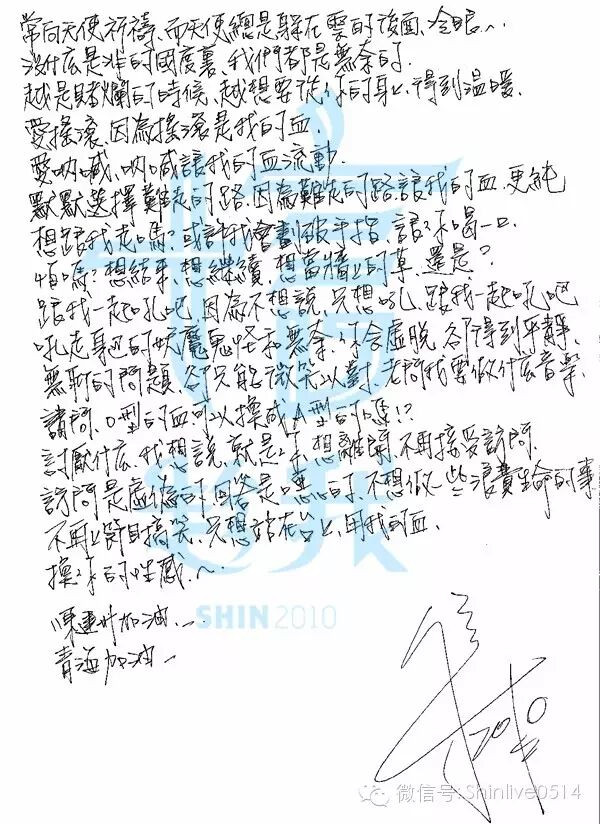 常向天使祈禱,而天使總是躲在雲的後面,冷眼~
沒什么是非的國度裏,我們都是無奈的.
越是賭爛的時候,越想要從你的身上,得到溫暖.
愛搖滾,因為搖滾是我的血.
愛吶喊,吶喊讓我的血流動.
默默選擇難走的路,因為難走的路讓我的血,更純
想跟我走嗎?或許我會劃破手指,讓你喝一口.
怕嗎?想結束,想繼續,想當牆上的草,還是?
跟我一起吼吧,因為不想說,只想吼,跟我一起吼吧
吼走身邊的妖魔鬼怪和無奈,你會虛脫,卻得到平靜.
無聊的問題,卻只能微笑以對,老問我要做什么音樂.
請問,O型的血可以換成A型的嗎!?
討厭什么,我想說,就是 想離開,不再接受訪問.
訪問是虛偽的,回答是噁心的,不想做一些浪費生命的事
不再上節目搞笑,只想站在台上,用我的血.
換你的性感~
陳建州加油~
青海加油~
信
SHIN 2010
微信号: Shinlive0514